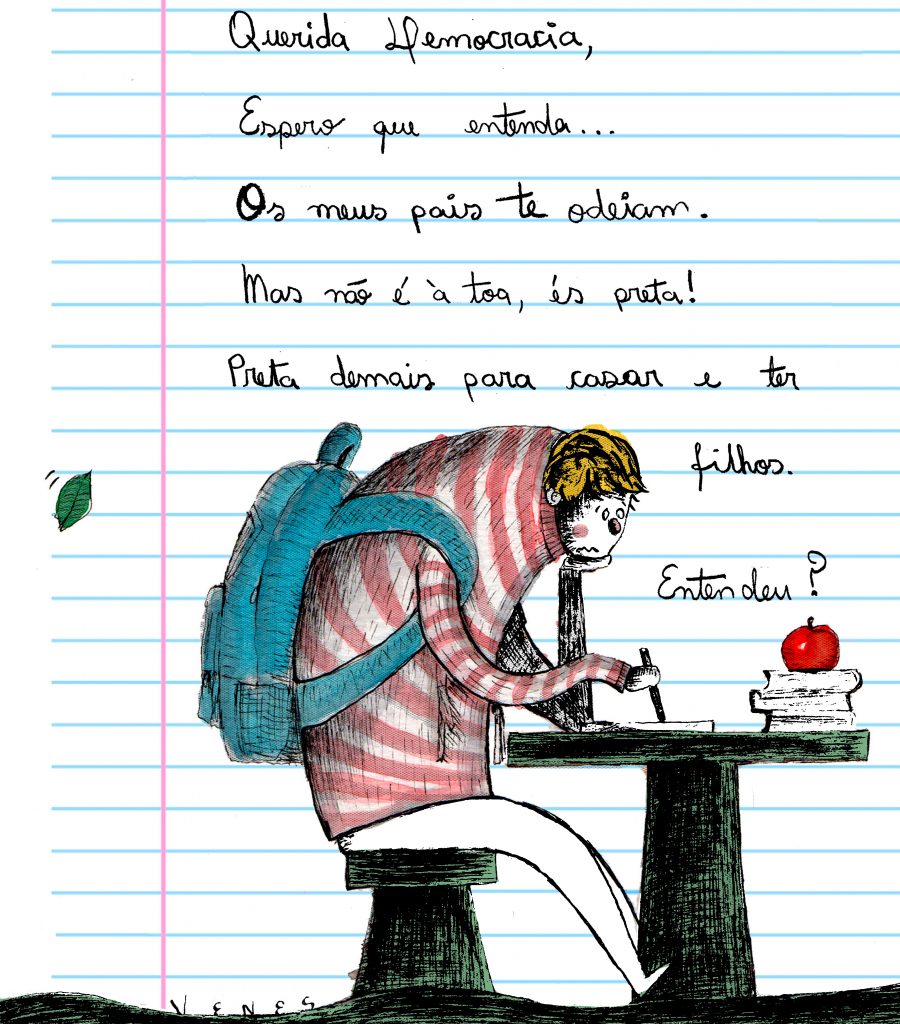 Querida Democracia,
Espero que entenda...
Os meus pais te odeiam.
Mas não é à toa, és preta!
Preta demais para casar e ter
filhos.
Entendeu?
VENES